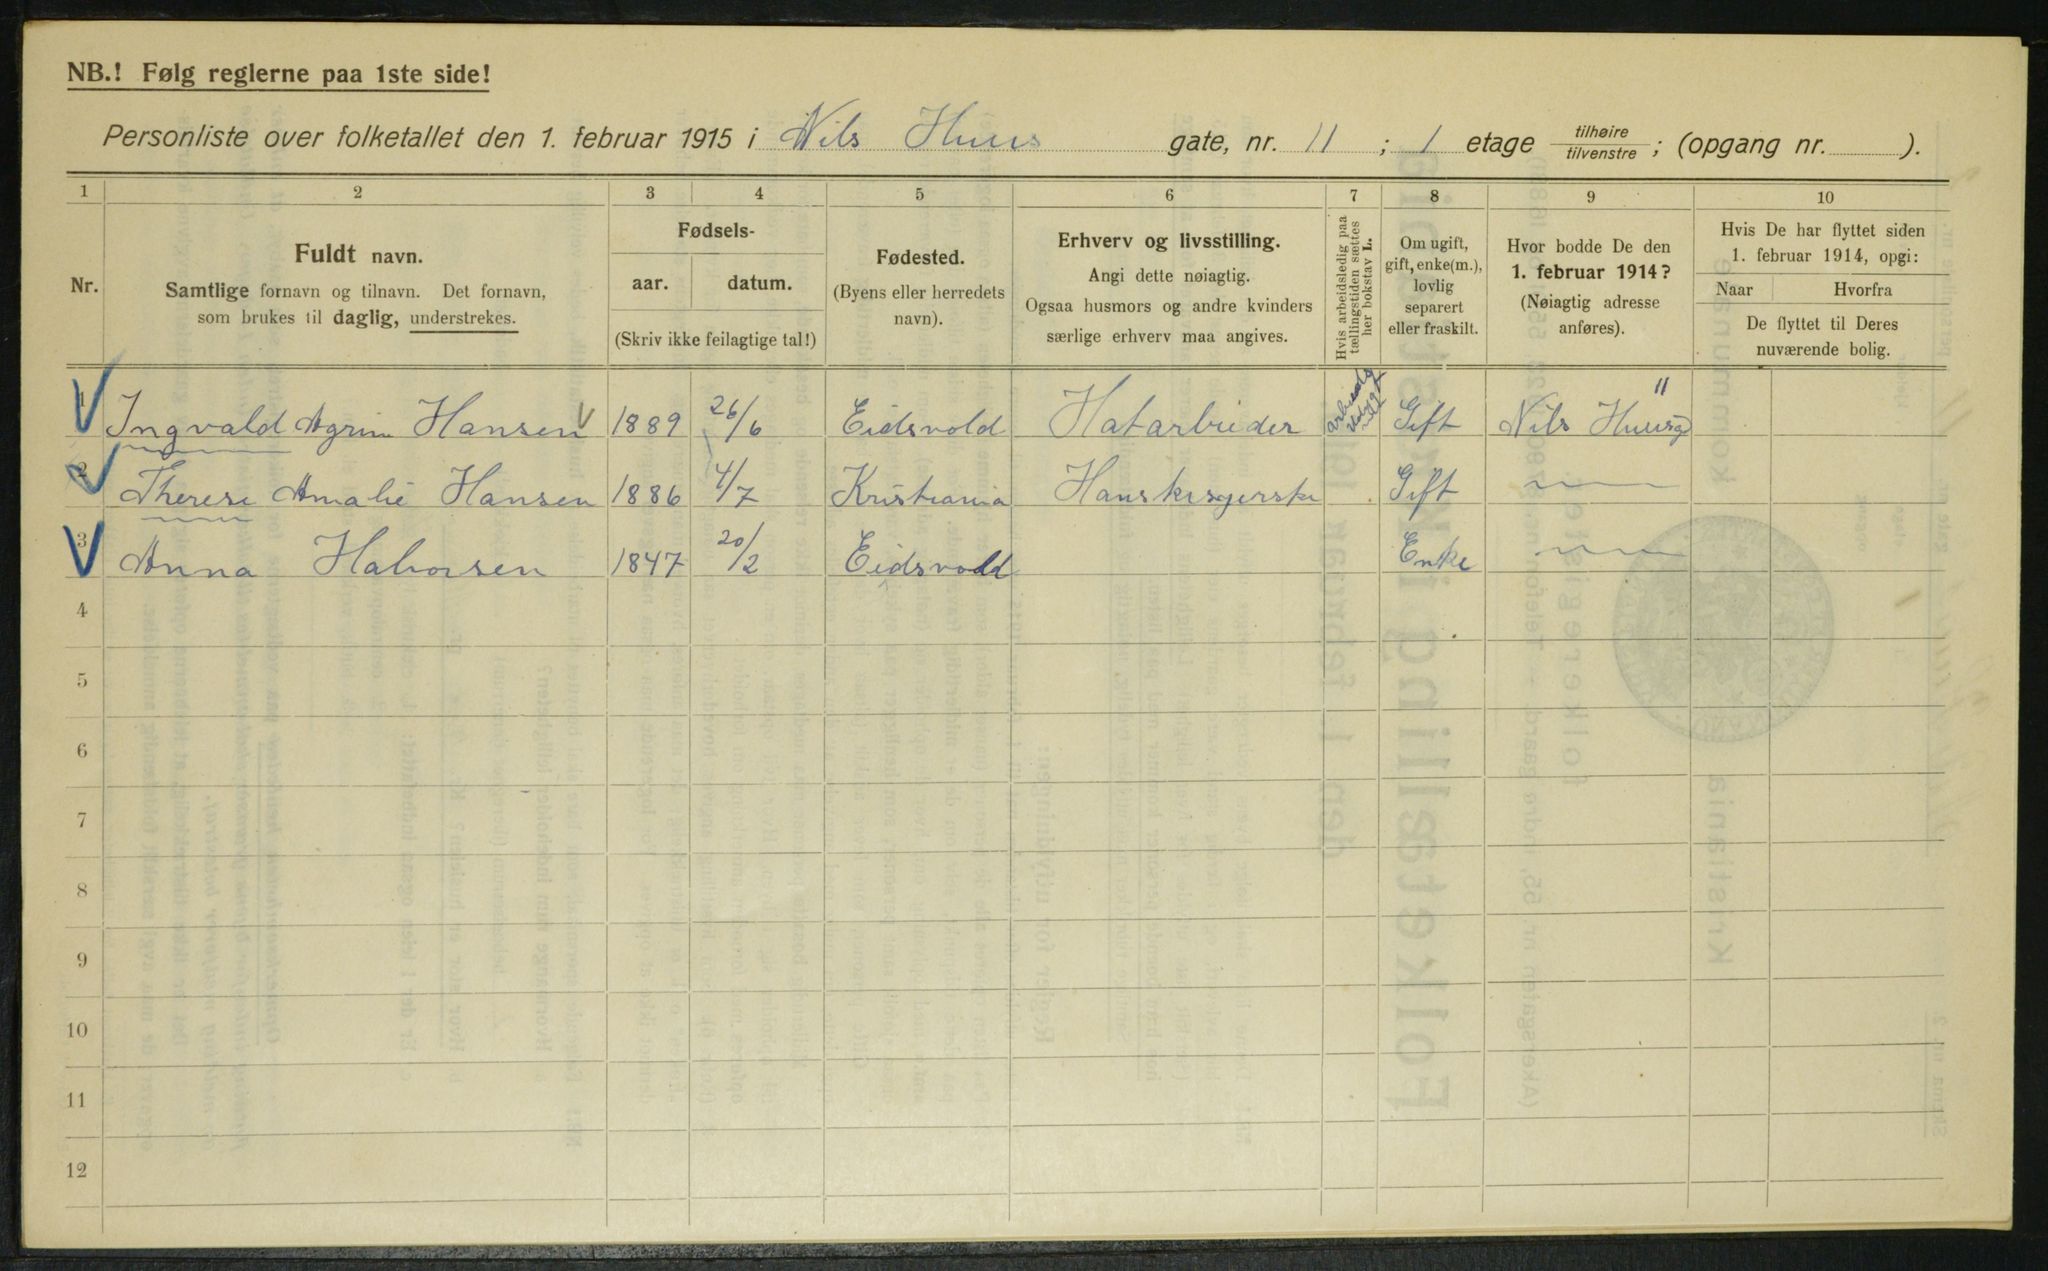 NB.! Følg reglerne paa 1ste side!
Personliste over folketallet den 1. februar 1915 i Nils Huus gate, nr. 11 ; 1 etage tilhøire tilvenstre ; (opgang nr. ).
1 2 3 4 5 6 7 8 9 10
Nr.
Fuldt navn.
Samtlige fornavn og tilnavn. Det fornavn,
som brukes til daglig, understrekes.
Fødsels-
aar. datum.
(Skriv ikke feilagtige tal!)
Fødested.
(Byens eller herredets
navn).
Erhverv og livsstilling.
Angi dette nøiagtig.
Ogsaa husmors og andre kvinders
særlige erhverv maa angives.
Hvis arbeidsledig paa
tællingstiden sættes
her bokstav L.
Om ugift,
gift, enke(m.),
lovlig
separert
eller fraskilt.
Hvor bodde De den
1. februar 1914?
(Nøiagtig adresse
anføres).
Hvis De har flyttet siden
1. februar 1914, opgi:
Naar Hvorfra
De flyttet til Deres
nuværende bolig.
1 Ingvald Agrim Hansen 1889 26/6 Eidsvold Hatarbeider Gift Nils Huusg 11
2 Therese Amalie Hansen 1886 4/7 Kristiania Hanskesyerske Gift
3 Anna Halvorsen 1847 20/2 Eidsvold Enke
4
5
6
7
8
9
10
11
12